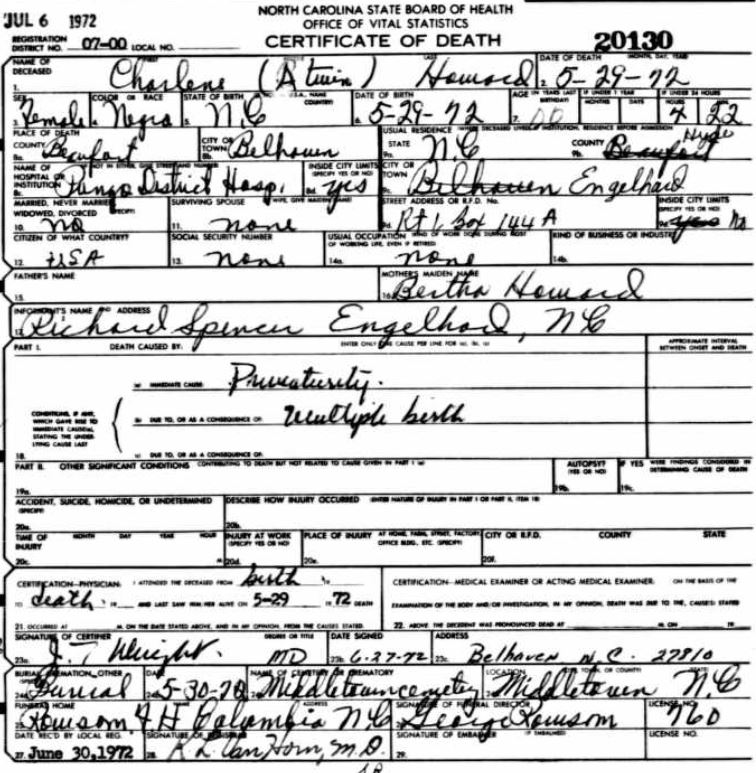 NORTH CAROLINA STATE BOARD OF HEALTH
JUL 6 1972
OFFICE OF VITAL STATISTICS
REGISTRATION DISTRICT NO. 07-00 LOCAL NO.
CERTIFICATE OF DEATH
20130
NAME OF DECEASED FIRST LAST DATE OF DEATH (MONTH, DAY, YEAR)
1. Charlene (A twin) Howard 2. 5-29-72
SEX COLOR OR RACE STATE OF BIRTH COUNTRY) DATE OF BIRTH AGE (IN YEARS LAST BIRTHDAY) IF UNDER 1 YEAR MONTHS DAYS IF UNDER 24 HOURS HOURS
3. Female 4. Negro 5. N.C 6. 5-29-72 7. 00 4 22
PLACE OF DEATH USUAL RESIDENCE (WHERE DECEASED LIVED, IF INSTITUTION, RESIDENCE BEFORE ADMISSION)
COUNTY Beaufort CITY OR TOWN Belhaven STATE N.C COUNTY Beaufort Hyde
8a. 8b. 9a. 9b.
NAME OF HOSPITAL OR INSTITUTION Pungo District Hosp. INSIDE CITY LIMITS (SPECIFY YES OR NO) yes CITY OR TOWN Belhaven Engelhard
8c. 8d. 9c.
MARRIED, NEVER MARRIED WIDOWED, DIVORCED (SPECIFY) SURVIVING SPOUSE (IF WIFE, GIVE MAIDEN NAME) STREET ADDRESS OR R.F.D. No. INSIDE CITY LIMITS (SPECIFY YES OR NO)
10. no 11. none 9d. Rt 1, Box 144 A 9e. yes No
CITIZEN OF WHAT COUNTRY? SOCIAL SECURITY NUMBER USUAL OCCUPATION (KIND OF WORK DONE DURING MOST OF WORKING LIFE, EVEN IF RETIRED) KIND OF BUSINESS OR INDUSTRY
12. USA 13. none 14a. none 14b.
FATHER'S NAME MOTHER'S MAIDEN NAME
15. 16. Bertha Howard
INFORMANT'S NAME AND ADDRESS
17. Richard Spencer Engelhard, NC
PART I. DEATH CAUSED BY: ENTER ONLY ONE CAUSE PER LINE FOR (a), (b), (c) APPROXIMATE INTERVAL BETWEEN ONSET AND DEATH
(a) IMMEDIATE CAUSE: Prematurity.
CONDITIONS, IF ANY, WHICH GAVE RISE TO IMMEDIATE CAUSE(a), STATING THE UNDERLYING CAUSE LAST
(b) DUE TO, OR AS A CONSEQUENCE OF: Multiple birth
18. (c) DUE TO, OR AS A CONSEQUENCE OF:
PART II. OTHER SIGNIFICANT CONDITIONS CONTRIBUTING TO DEATH BUT NOT RELATED TO CAUSE GIVEN IN PART I (a) AUTOPSY? (YES OR NO) IF YES WERE FINDINGS CONSIDERED IN DETERMINING CAUSE OF DEATH
19a. 19b. 19c.
ACCIDENT, SUICIDE, HOMICIDE, OR UNDETERMINED (SPECIFY) DESCRIBE HOW INJURY OCCURRED (ENTER NATURE OF INJURY IN PART I OR PART II, ITEM 18)
20a. 20b.
TIME OF INJURY MONTH DAY YEAR HOUR INJURY AT WORK (SPECIFY YES OR NO) PLACE OF INJURY AT HOME, FARM, STREET, FACTORY, OFFICE BLDG., ETC. (SPECIFY) CITY OR R.F.D. COUNTY STATE
20c. M 20d. 20e. 20f.
CERTIFICATION—PHYSICIAN: I ATTENDED THE DECEASED FROM birth 19 CERTIFICATION—MEDICAL EXAMINER OR ACTING MEDICAL EXAMINER: ON THE BASIS OF THE
TO death 19 AND LAST SAW HIM/HER ALIVE ON 5-29 1972 DEATH EXAMINATION OF THE BODY AND/OR INVESTIGATION, IN MY OPINION, DEATH WAS DUE TO THE, CAUSE(S) STATED
21. OCCURRED AT M. ON THE DATE STATED ABOVE, AND IN MY OPINION, FROM THE CAUSES STATED. 22. ABOVE. THE DECEDENT WAS PRONOUNCED DEAD AT M. ON 19
SIGNATURE OF CERTIFIER DEGREE OR TITLE DATE SIGNED ADDRESS
23a. J. T. Wright. MD 23b. 6-27-72 23c. Belhaven N.C. 27810
BURIAL, CREMATION, OTHER (SPECIFY) DATE NAME OF CEMETERY OR CREMATORY LOCATION (CITY, TOWN, OR COUNTY) (STATE)
24a. Burial 5-30-72 Middletown cemetery Middletown N.C
FUNERAL HOME ADDRESS SIGNATURE OF FUNERAL DIRECTOR LICENSE NO.
25. Rowsom F H Columbia NC George Rowsom 760
DATE REC'D BY LOCAL REG. SIGNATURE OF REGISTRAR SIGNATURE OF EMBALMER (IF EMBALMED) LICENSE NO.
27. June 30, 1972 28. K. L. Van Horn, M.D. 29.